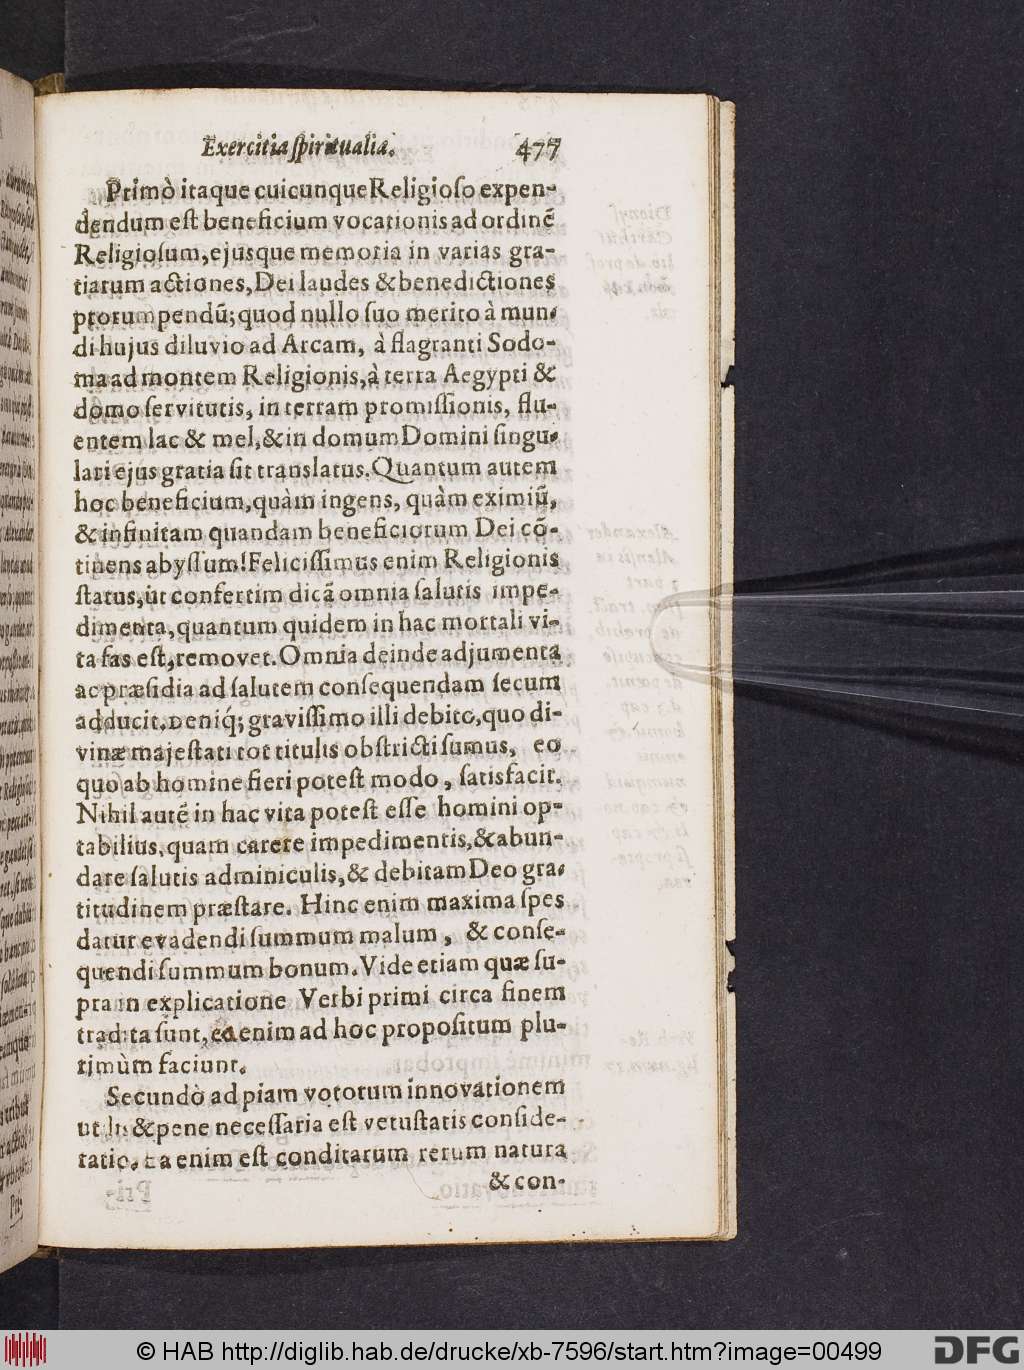 Exercitia ſpiritualia. 477
Primò itaque cuicunque Religioſo expen-
dendum eſt beneficium vocationis ad ordinē
Religioſum, ejusque memoria in varias gra-
tiarum actiones, Dei laudes & benedictiones
prorumpendū; quod nullo ſuo merito à mun-
di hujus diluvio ad Arcam, à flagranti Sodo-
ma ad montem Religionis, à terra Aegypti &
domo ſervitutis, in terram promiſſionis, flu-
entem lac & mel, & in domum Domini ſingu-
lari ejus gratia ſit translatus. Quantum autem
hoc beneficium, quàm ingens, quàm eximiū,
& infinitam quandam beneficiorum Dei cō-
tinens abyſſum! Feliciſſimus enim Religionis
ſtatus, ut confertim dicā omnia ſalutis impe-
dimenta, quantum quidem in hac mortali vi-
ta fas eſt, removet. Omnia deinde adjumenta
ac præſidia ad ſalutem conſequendam ſecum
adducit. Deniq́; graviſſimo illi debito, quo di-
vinæ majeſtati tot titulis obſtricti ſumus, eo
quo ab homine fieri poteſt modo, ſatisfacit.
Nihil autē in hac vita poteſt eſſe homini op-
tabilius, quam carere impedimentis, & abun-
dare ſalutis adminiculis, & debitam Deo gra-
titudinem præſtare. Hinc enim maxima ſpes
datur evadendi ſummum malum, & conſe-
quendi ſummum bonum. Vide etiam quæ ſu-
pra in explicatione Verbi primi circa finem
tradita ſunt, ea enim ad hoc propoſitum plu-
rimùm faciunt.
Secundò ad piam votorum innovationem
utilis & pene neceſſaria eſt vetuſtatis conſide-
ratio. Ea enim eſt conditarum rerum natura
& con-
© HAB http://diglib.hab.de/drucke/xb-7596/start.htm?image=00499
DFG